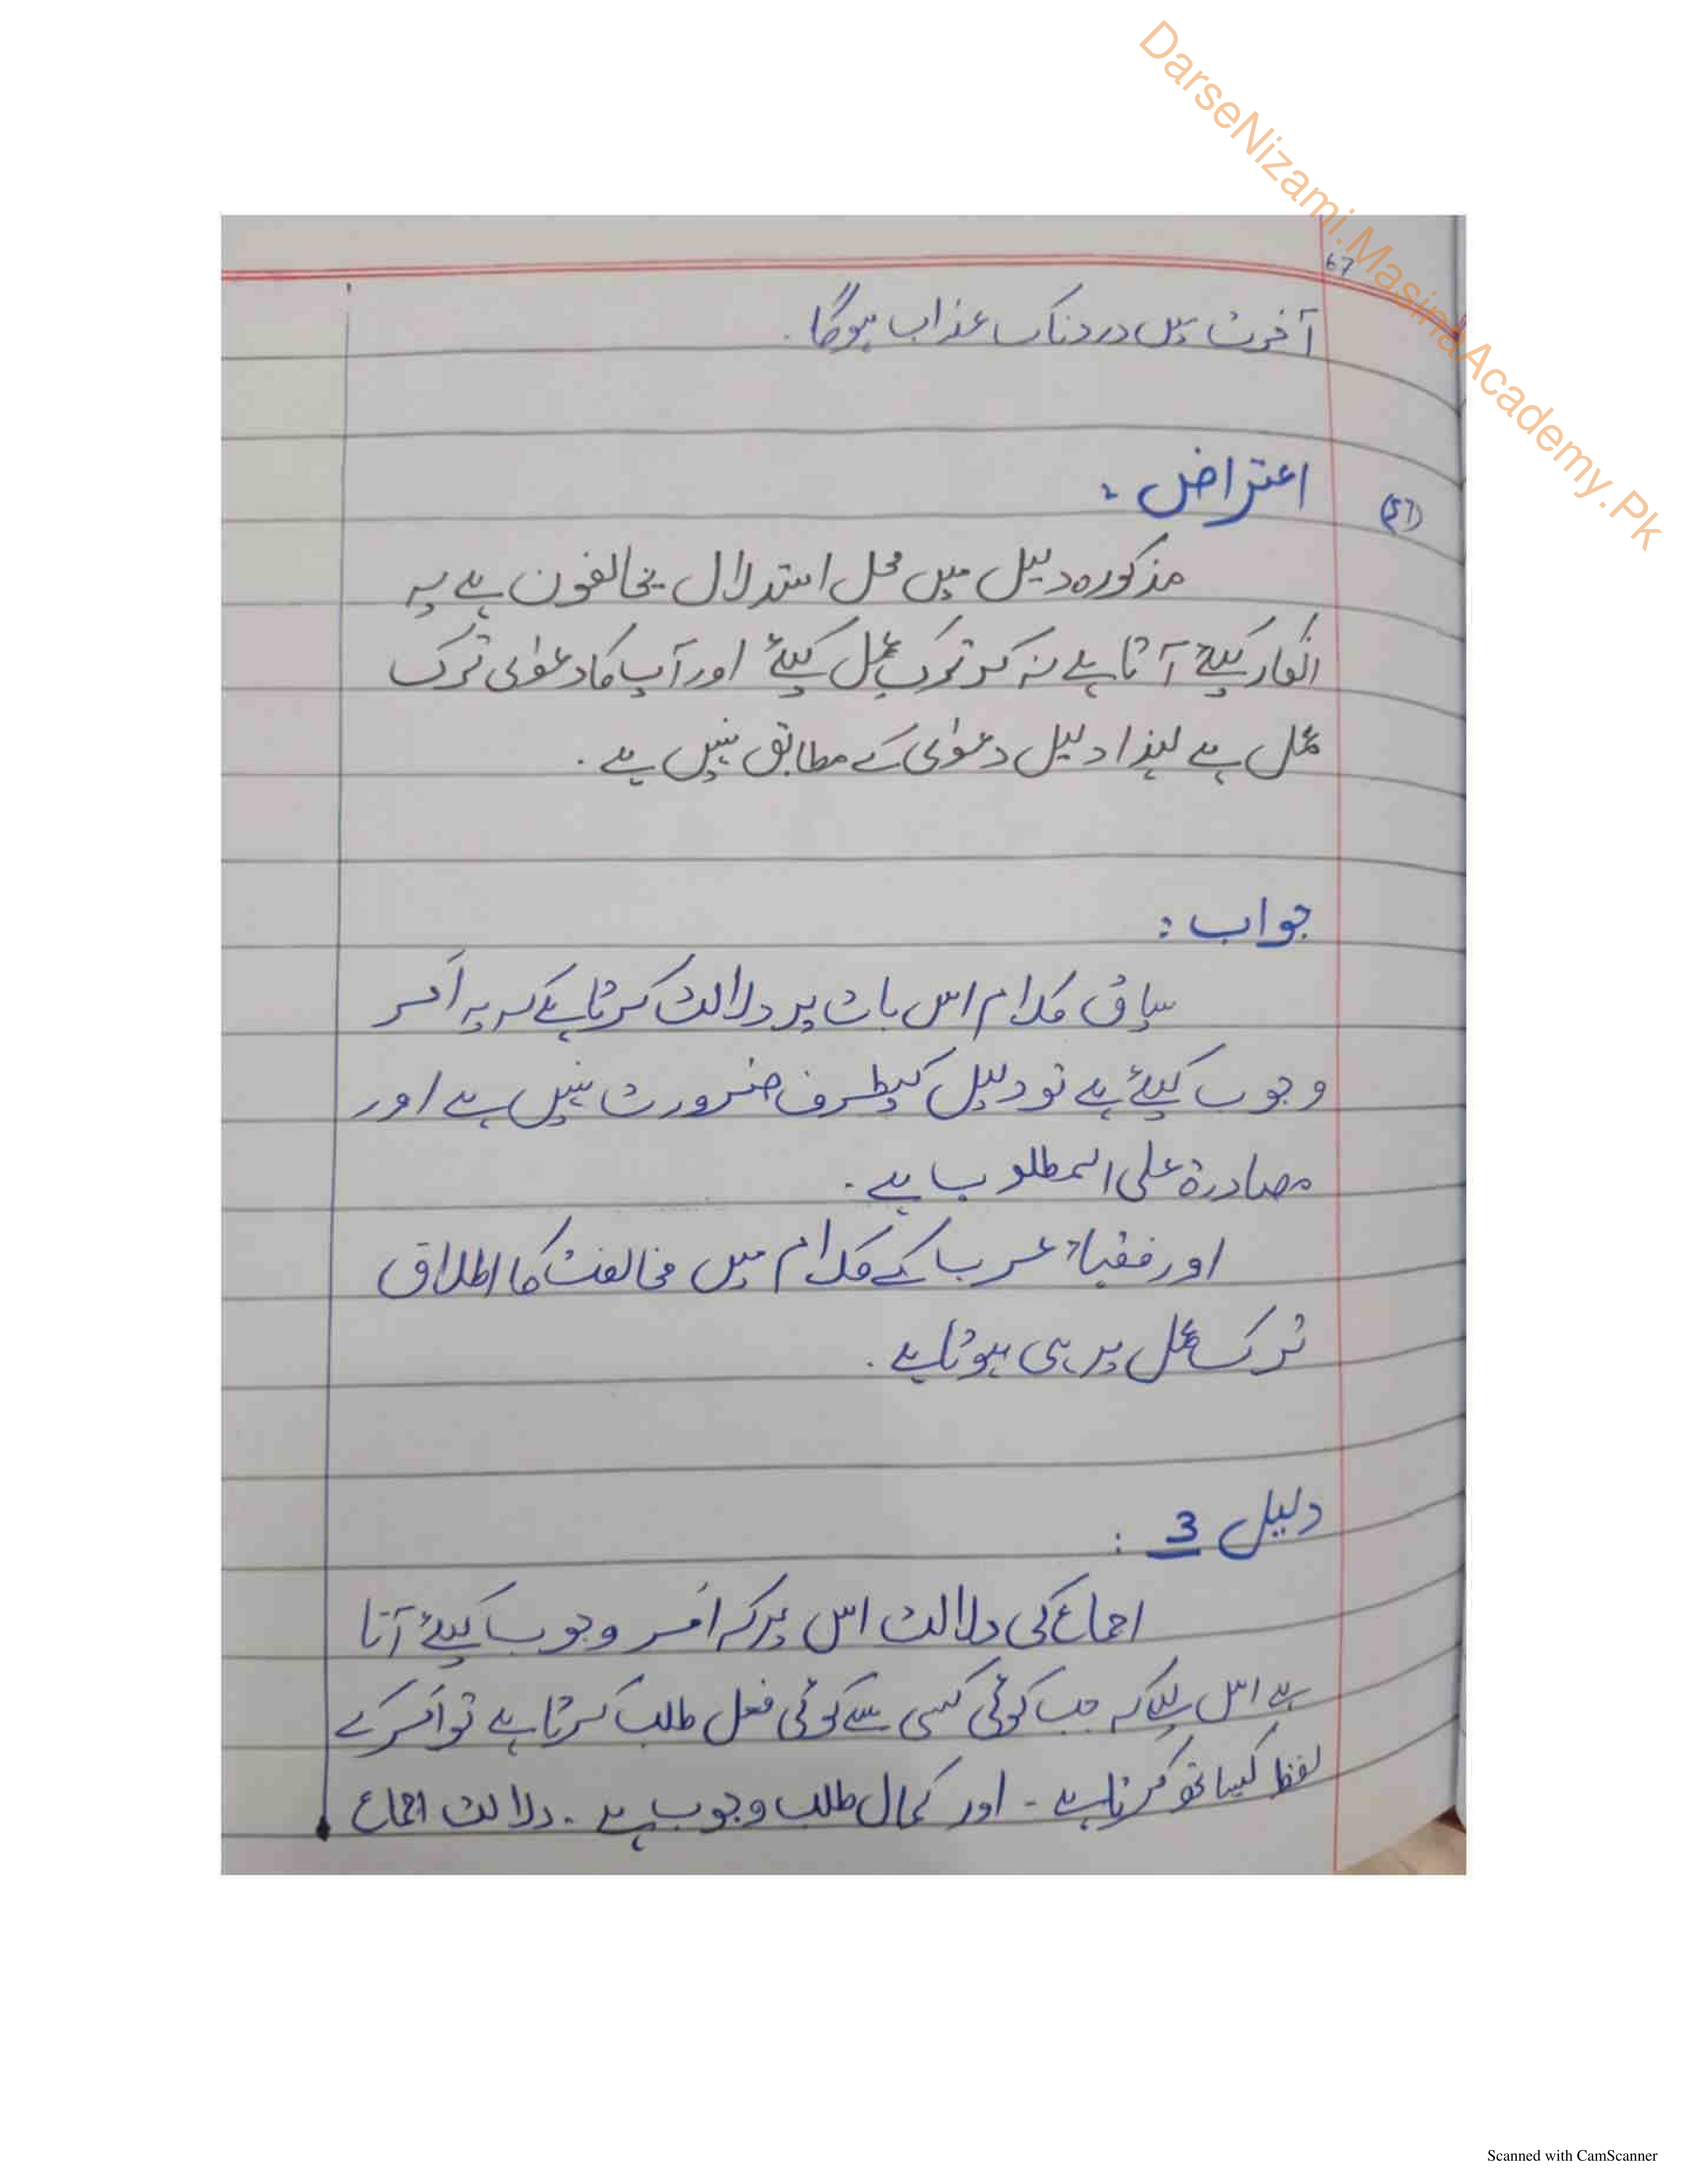 DarseNizami.MasinaAcademy.Pk
67
آخرت میں دردناک عذاب ہوگا۔
اعتراض :
مذکورہ دلیل میں محل استدلال یخالفون ہے یہ
انکار کیلئے آتا ہے نہ کہ ترکِ عمل کیلئے اور آپ کا دعوٰی ترک
عمل ہے لہذا دلیل دعوٰی کے مطابق نہیں ہے ۔
جواب :
سیاق کلام اس بات پر دلالت کرتا ہے کہ یہ اَمر
وجوب کیلئے ہے تو دلیل کیطرف ضرورت نہیں ہے اور
مصادرۃ علی المطلوب ہے ۔
اور فقہاء عرب کے کلام میں مخالفت کا اطلاق
ترک عمل پر ہی ہوتا ہے ۔
دلیل 3 :
اجماع کی دلالت اس پر کہ اَمر وجوب کیلئے آتا
ہے اس لیے کہ جب کوئی کسی سے کوئی فعل طلب کرتا ہے تو اَمر کے
لفظ کیساتھ کرتا ہے ۔ اور کمال طلب وجوب ہے ۔ دلالت اجماع
Scanned with CamScanner